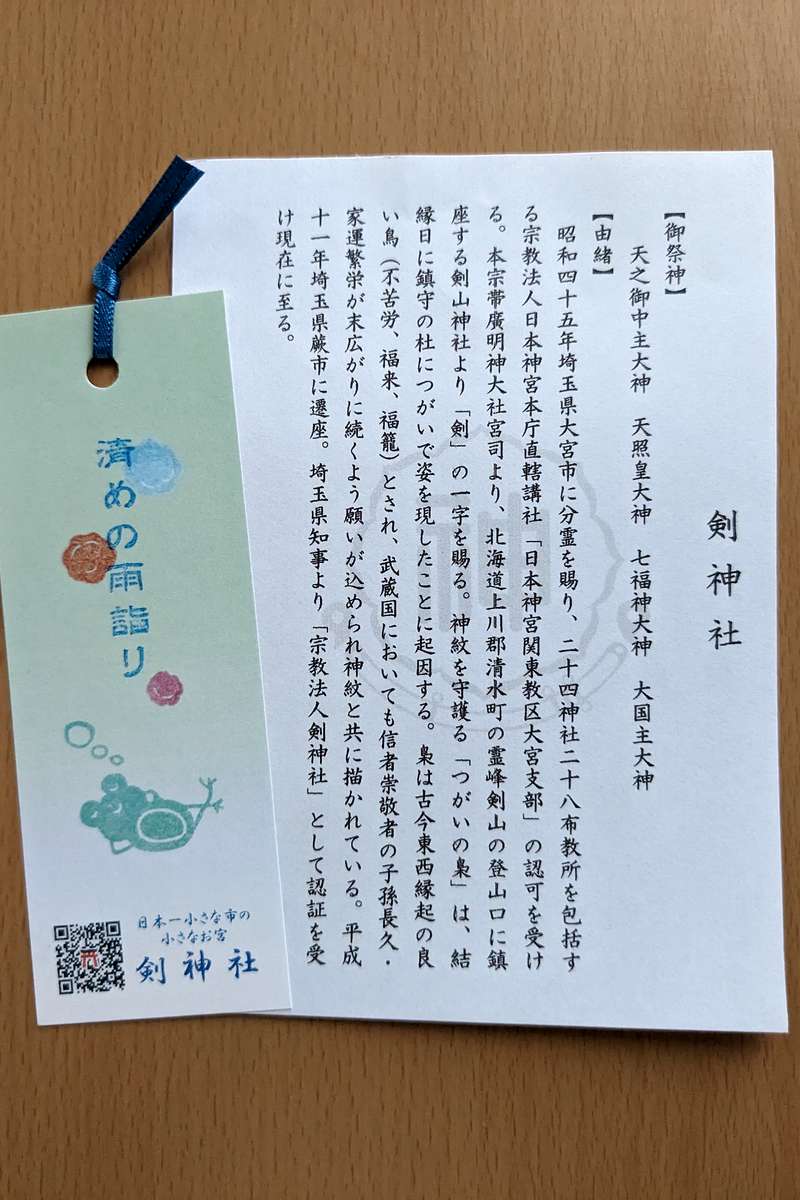 剣神社
【御祭神】
天之御中主大神　天照皇大神　七福神大神　大国主大神
【由緒】
昭和四十五年埼玉県大宮市に分霊を賜り、二十四神社二十八布教所を包括す
る宗教法人日本神宮本庁直轄講社「日本神宮関東教区大宮支部」の認可を受け
る。本宗帯廣明神大社宮司より、北海道上川郡清水町の霊峰剣山の登山口に鎮
座する剣山神社より「剣」の一字を賜る。神紋を守護る「つがいの梟」は、結
縁日に鎮守の杜につがいで姿を現したことに起因する。梟は古今東西縁起の良
い鳥（不苦労、福来、福籠）とされ、武蔵国においても信者崇敬者の子孫長久・
家運繁栄が末広がりに続くよう願いが込められ神紋と共に描かれている。平成
十一年埼玉県蕨市に遷座。埼玉県知事より「宗教法人剣神社」として認証を受
け現在に至る。
清めの雨詣り
日本一小さな市の
小さなお宮
剣神社